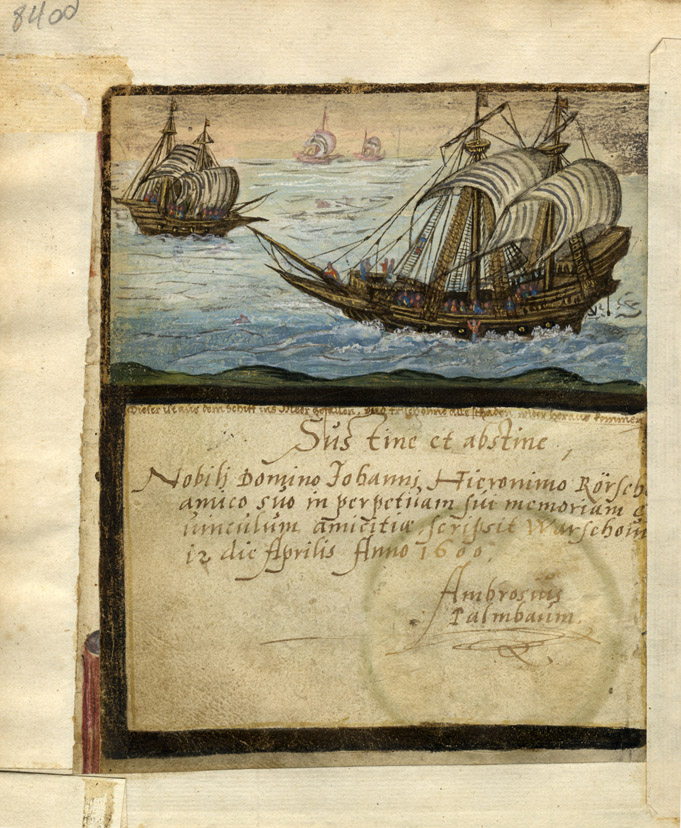 8400
Dieser ist aus dem Schiff ins Meer gefallen, und ist ohne alle schaden wider heraus kommen
Sustine et abstine,
Nobilj Domino Johannj Hieronimo Rörsch
amico suo in perpetuam sui memoriam
vinculum amicitiæ scripsit Warschouiæ
12 die Aprilis Anno 1600.
Ambrosius
Palmbaum.